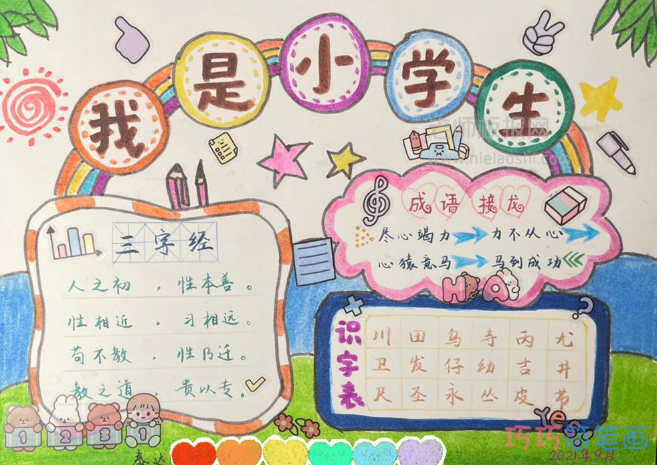 我是小学生
www.nielaoshi.com
三字经
人之初，性本善。
性相近，习相远。
苟不教，性乃迁。
教之道，贵以专。
成语接龙
尽心竭力 力不从心
心猿意马 马到成功
HA
识字表
川 田 鸟 寺 丙 尤
卫 发 仔 幼 吉 井
尺 圣 永 丛 皮 节
1 2 3 1
Yes
巧巧简笔画
2021年9月